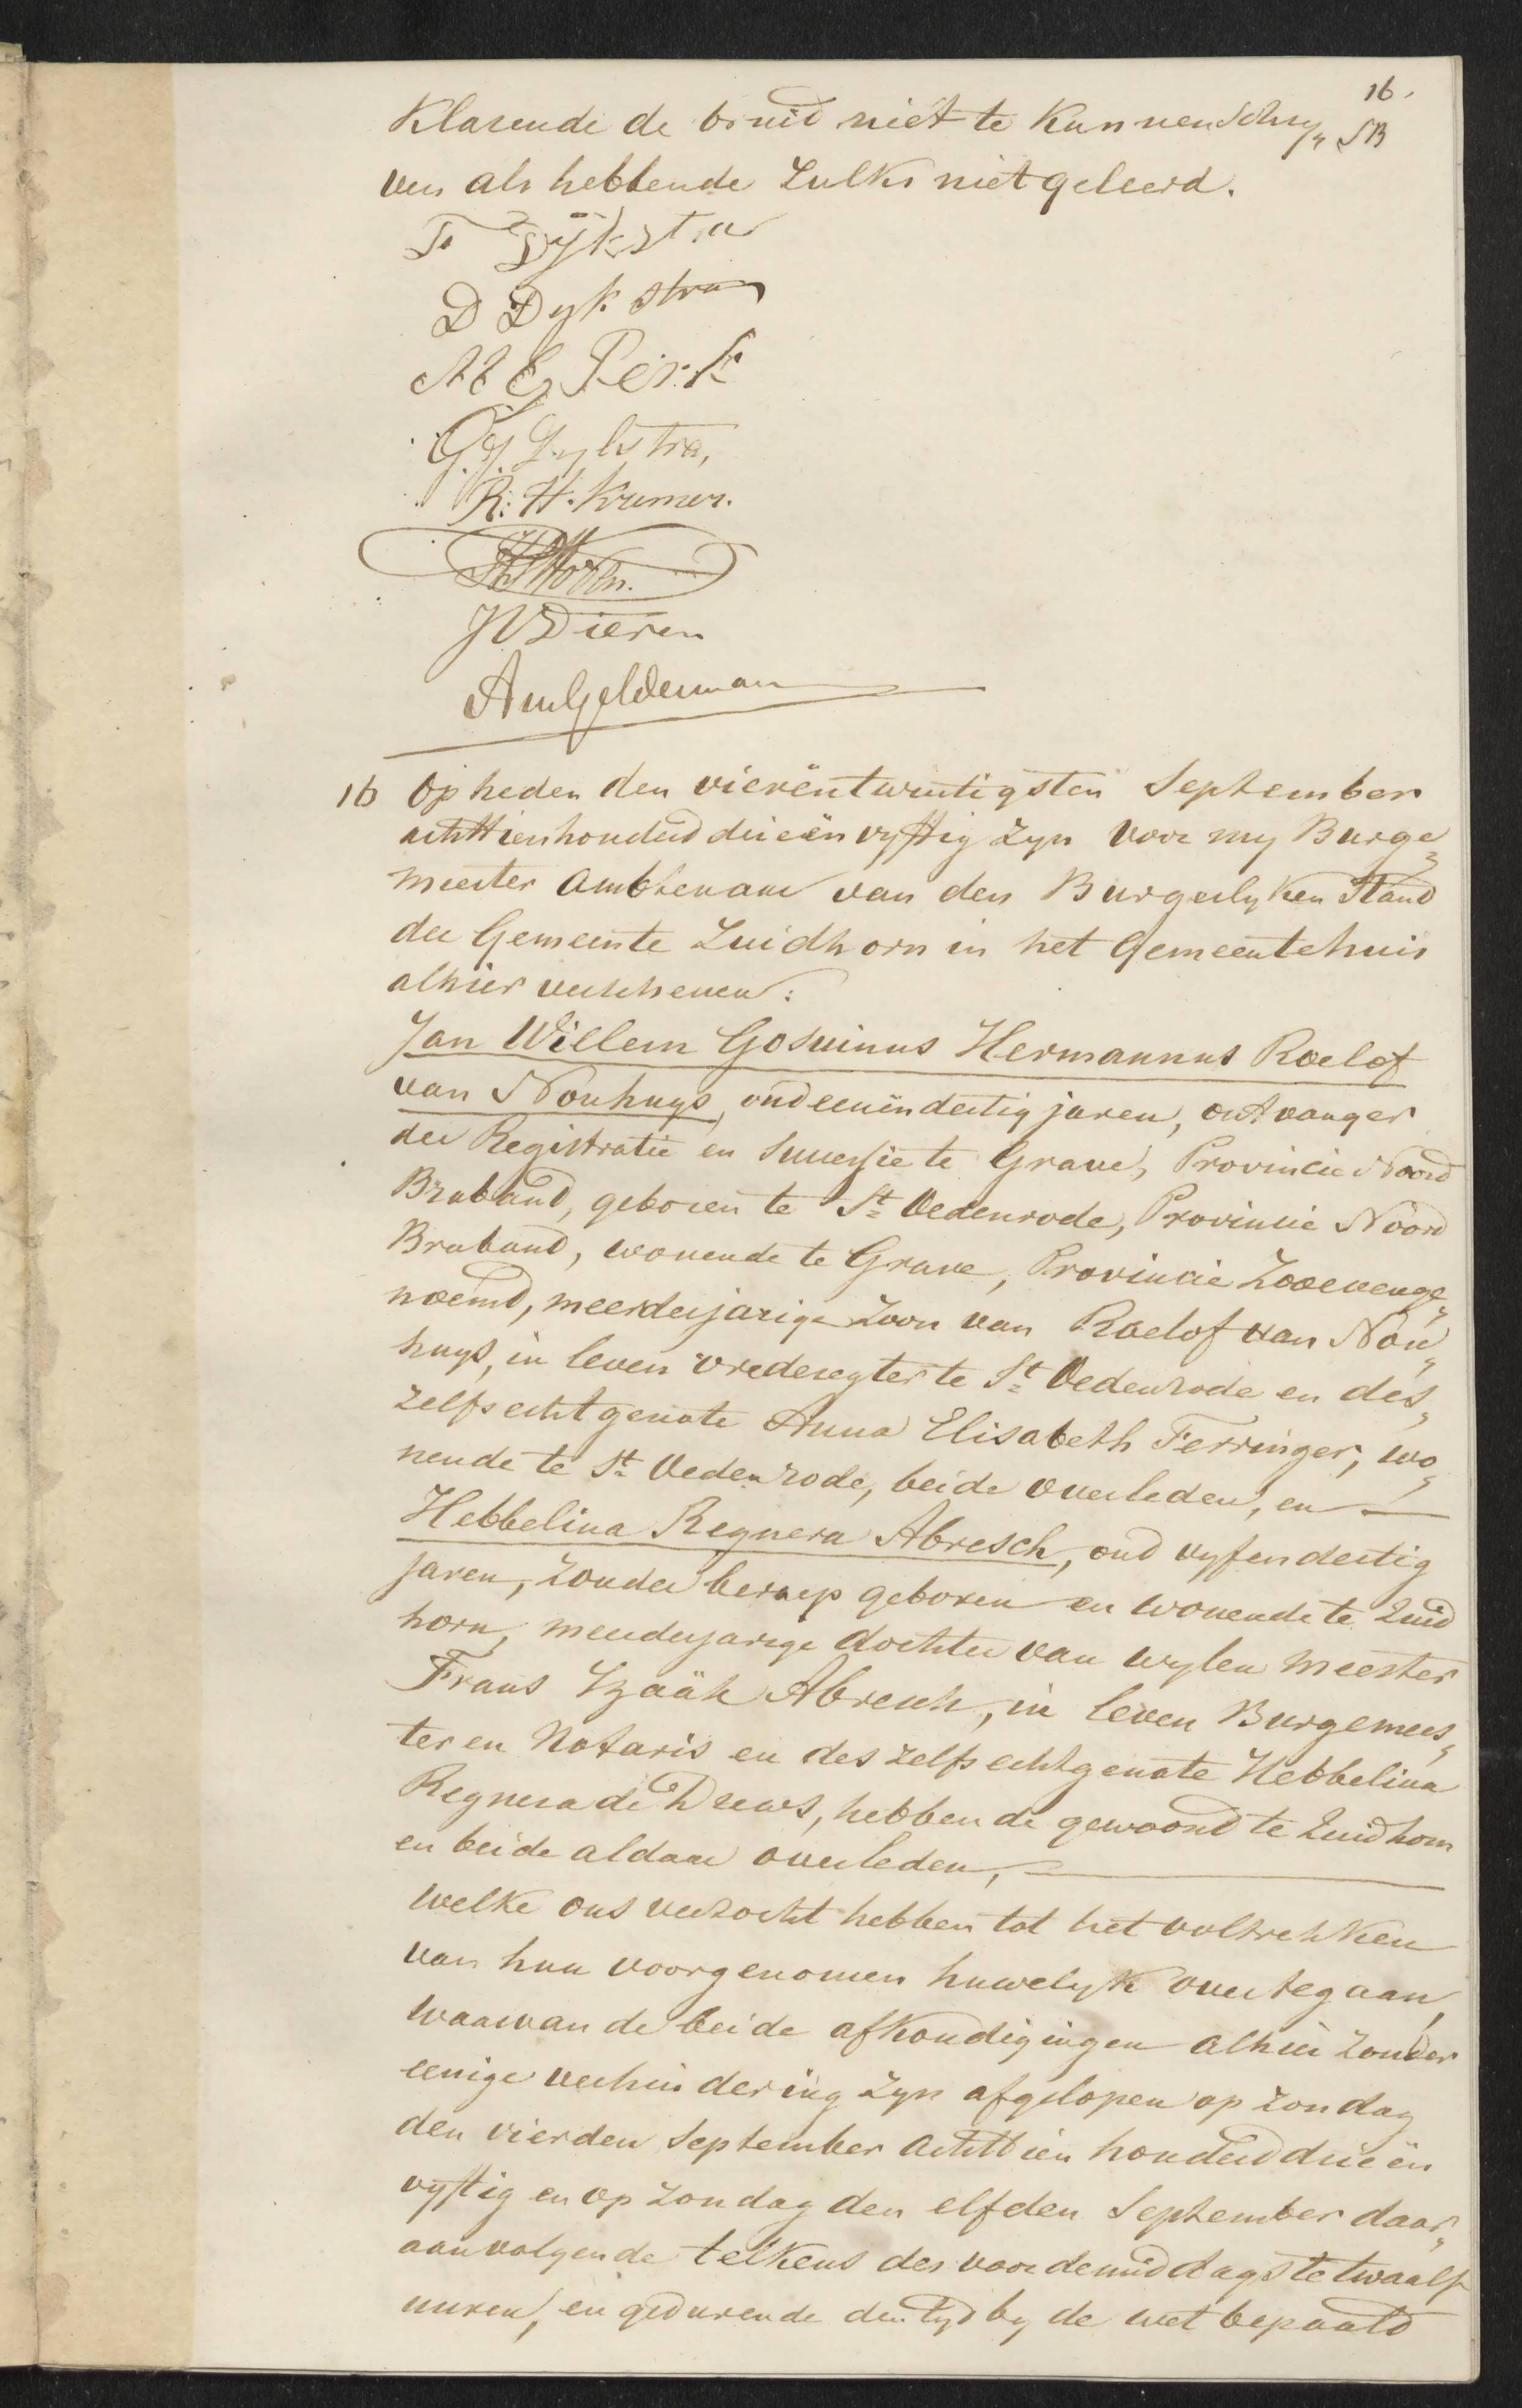 16.
SB
Klarende de bruid niet te Kunnen schry„
ven als hebbende Zulks niet geleerd.
T Dÿkstra
D Dykstra
M E Perk
G. J. Dylstra,
R. H. Kremer.
JV Dieren
AmGelderman
16 Op heden den vierëntwintigsten September
achttienhonderd drieën vyftig Zyn voor my Burge„
meester Ambtenaar van den Burgerlyken Stand
der Gemeente Zuidhorn in het Gemeentehuis
alhier verschenen:
Jan Willem Goswinus Hermannus Roelof
van Nouhuys, oud eenëndertig jaren, ontvanger
der Registratie en Successie te Grave, Provincie Noord
Braband, geboren te St. Oedenrode, Provincie Noord
Braband, wonende te Grave, Provincie Zooevenge„
noemd, meerderjarige Zoon van Roelof van Nou„
huys, in leven vrederegter te St. Oedenrode en des„
zelfs echtgenote Anna Elisabeth Ferringer, wo„
nende te St. Oedenrode, beide overleden, en
Hebbelina Regnera Abresch, oud vyfendertig
jaren, Zonder beroep geboren en wonende te Zuid
horn, meerderjarige dochter van wylen Meester
Frans Izaäk Abresch, in leven Burgemees„
ter en Notaris en deszelfs echtgenote Hebbelina
Regnera de Drews, hebbende gewoond te Zuidhorn
en beide aldaar overleden,
welke ons verzocht hebben tot het voltrekken
van hun voorgenomen huwelyk over te gaan,
waarvan de beide afkondigingen alhier Zonder
eenige verhindering Zyn afgelopen op Zondag
den vierden September achttien honderd drieën
vyftig en op Zondag den elfden September daar„
aanvolgende telkens des voordemiddags te twaalf
uuren, en gedurende den tyd by de wet bepaald